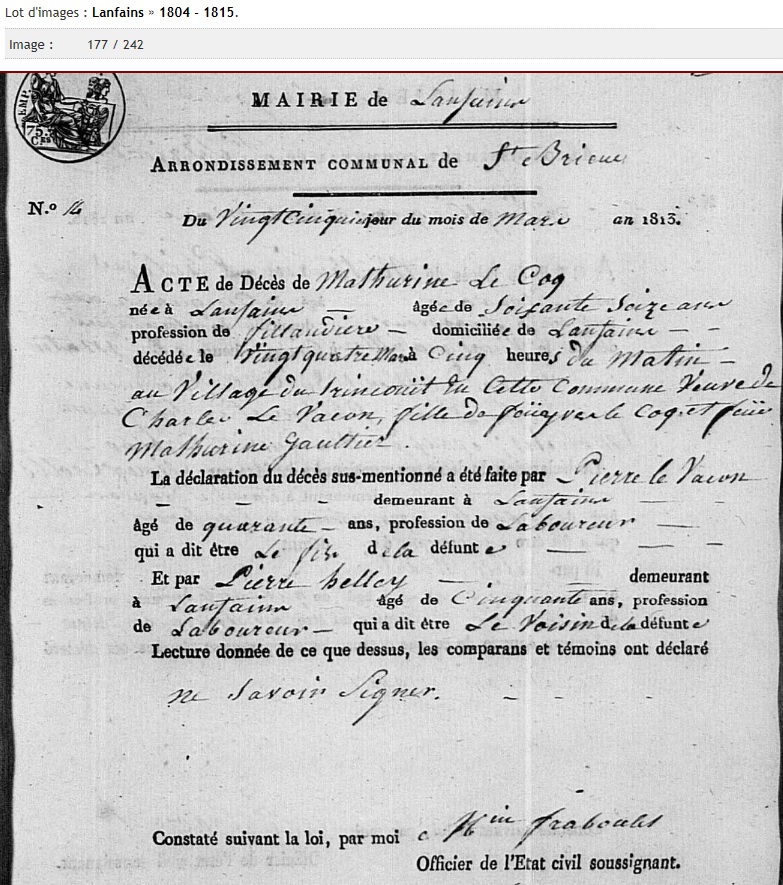 Lot d'images : Lanfains » 1804 - 1815.
Image : 177 / 242
TEMP.
75.
Ces
MAIRIE de Lanfains
ARRONDISSEMENT COMMUNAL de St Brieuc
N.o 14
Du Vingt Cinquie jour du mois de Mars an 1813.
ACTE de Décès de Mathurine Le Coq
née à Lanfains — âgée de Soixante Seize ans
profession de fillandiere — domiciliée de Lanfains — —
décédée le Vingt quatre Mars à Cinq heures du Matin —
au Village du en Cette Commune Veuve de
Charles Le Vacon, fille de Le Coq et feüe
Mathurine Gaultier.
La déclaration du décès sus-mentionné a été faite par Pierre le Vacon
— — demeurant à Lanfains — —
âgé de quarante — ans, profession de Laboureur —
qui a dit être Le fils de la défunte — — —
Et par Pierre helloy — — demeurant
à Lanfains âgé de Cinquante ans, profession
de Laboureur — qui a dit être Le Voisin de la défunte
Lecture donnée de ce que dessus, les comparans et témoins ont déclaré
ne Savoir Signer. — — —
Constaté suivant la loi, par moi
Officier de l'Etat civil soussigné.